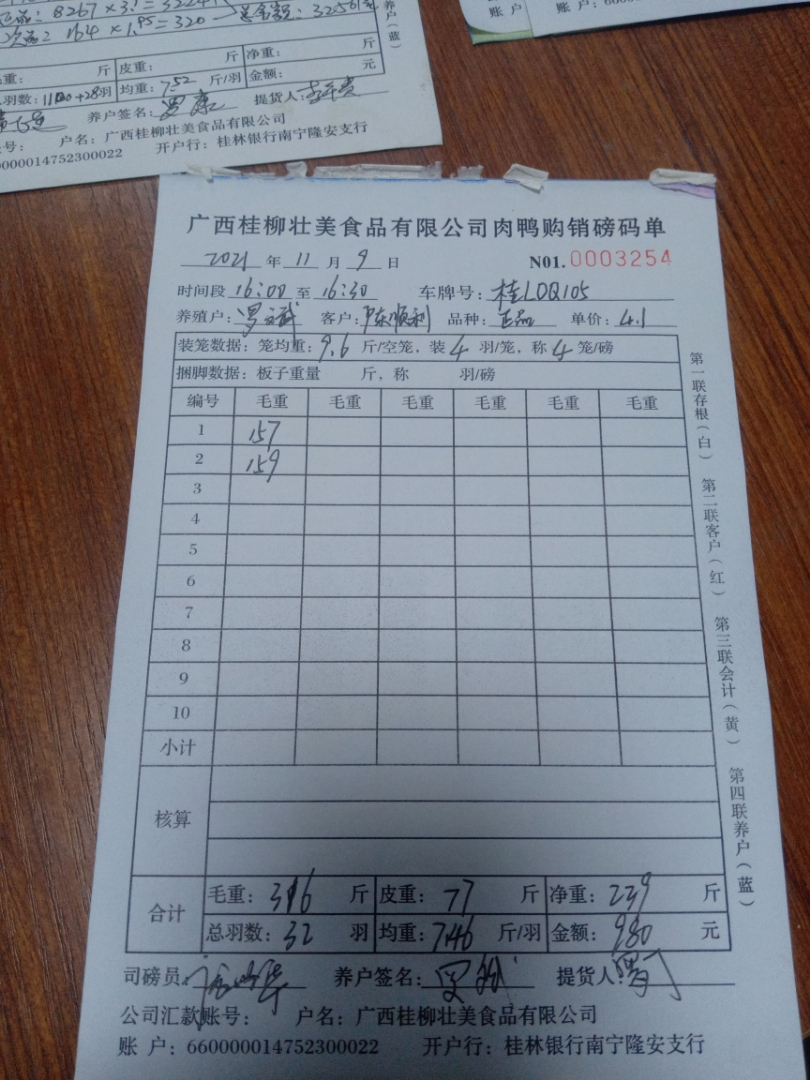 8267 × 3.
次品: 164 × 1.95 = 320
毛重： 斤 皮重： 斤 净重： 斤
均重：7.52 斤/羽 金额： 元
养户签名： 罗康 提货人：
户名：广西桂柳壮美食品有限公司
00000014752300022 开户行：桂林银行南宁隆安支行
账 户
账 户：
广西桂柳壮美食品有限公司肉鸭购销磅码单
2021 年 11 月 9 日 N01.0003254
时间段 16:00 至 16:30 车牌号：桂LDQ105
养殖户：罗武 客户：陈顺利 品种：正品 单价：4.1
装笼数据：笼均重：9.6 斤/空笼，装 4 羽/笼，称 4 笼/磅
捆脚数据：板子重量 斤，称 羽/磅
编号 毛重 毛重 毛重 毛重 毛重 毛重
1 157
2 159
3
4
5
6
7
8
9
10
小计
核算
合计 毛重：316 斤 皮重：77 斤 净重：239 斤
总羽数：32 羽 均重：7.46 斤/羽 金额：980 元
司磅员： 养户签名： 提货人：
公司汇款账号： 户名：广西桂柳壮美食品有限公司
账 户：660000014752300022 开户行：桂林银行南宁隆安支行
第一联存根（白） 第二联客户（红） 第三联会计（黄） 第四联养户（蓝）